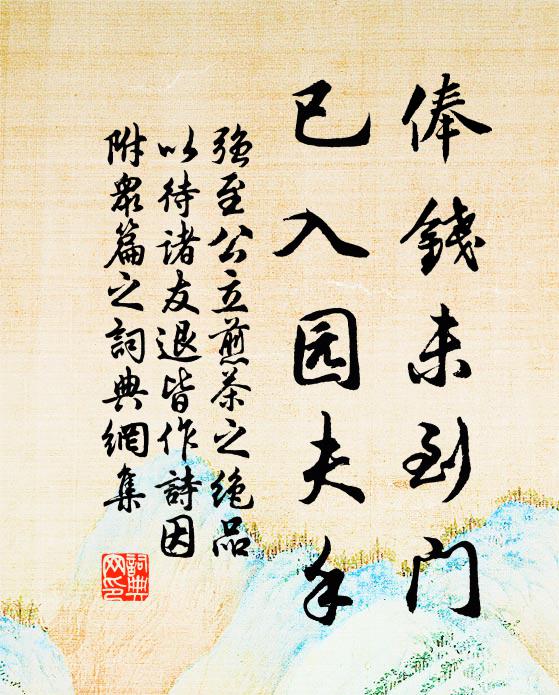 俸錢未到门
已入园夫手
強至公立煎茶之绝品
以待诸友退皆作詩因
附衆篇之詞典網集
詞典网印